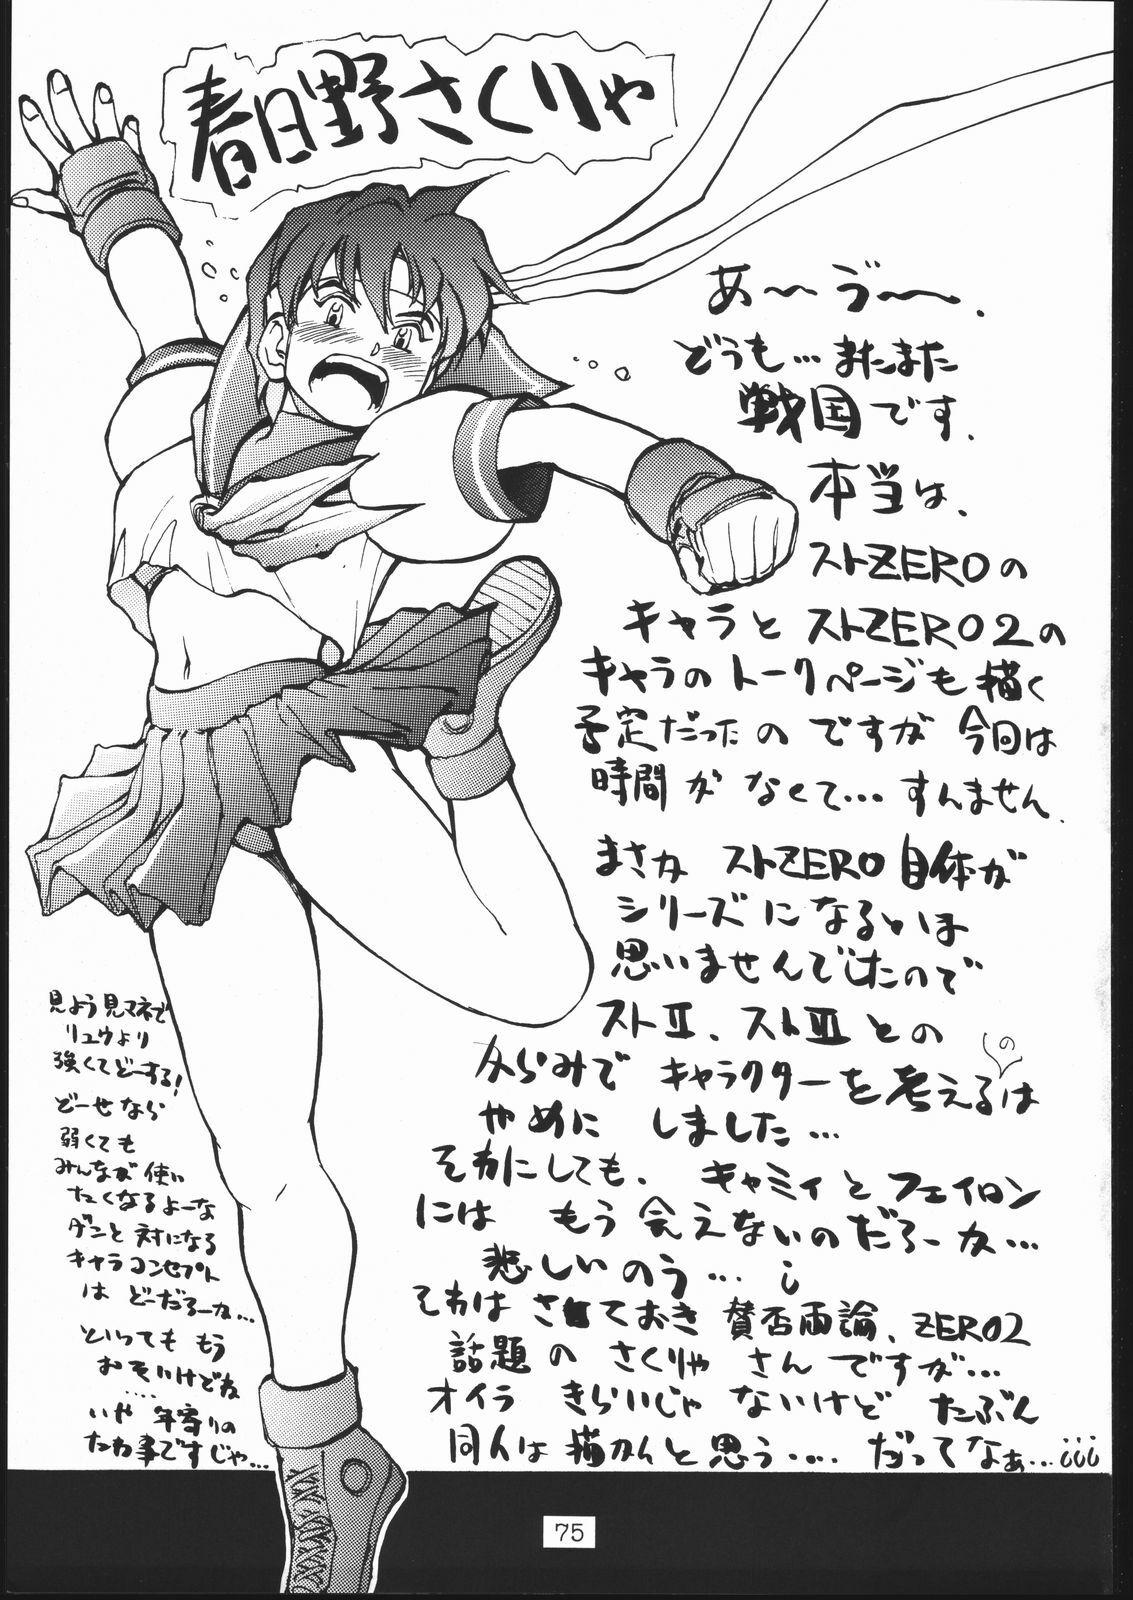 春日野さくりゃ
あ〜ゔ〜、
どうも…またまた
戦国です、
本当は、
ストZEROの
キャラとストZERO2の
キャラのトークページも描く
予定だったのですが今回は
時間がなくて…すんません、
まさかストZERO自体が
シリーズになるとは
思いませんでしたので
ストⅡ、ストⅢとの
からみでキャラクターを考えるのは
やめにしました…
それにしても、キャミィとフェイロン
にはもう会えないのだろーか…
悲しいのう…
それはさておき賛否両論、ZERO2
話題のさくりゃさんですが…
オイラきらいじゃないけどたぶん
同人は描かんと思う…だってなぁ…
見よう見マネで
リュウより
強くてどーする!
どーせなら
弱くても
みんなが使い
たくなるよーな
ダンと対になる
キャラコンセプト
はどーだろーか…
といってももう
おそいけどね
….
いや年寄りの
たわ事ですじゃ…
75